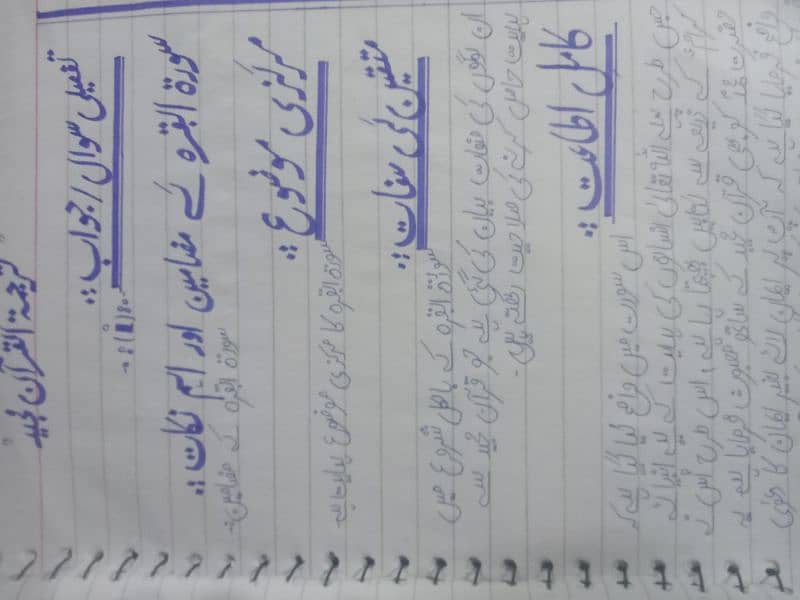 ترجمۃ القرآن مجید
تفصیلی سوال / جواب :
سورۃ البقرہ کے مضامین اور اہم نکات :
سورۃ البقرہ کے مضامین :
مرکزی موضوع :
سورۃ البقرہ کا مرکزی موضوع ہدایت ہے
متقین کی صفات :
سورۃ البقرہ کے بالکل شروع میں
ان لوگوں کی صفات بیان کی گئی ہے جو قرآن مجید سے
ہدایت حاصل کرنے کی صلاحیت رکھتے ہیں -
کامل اطاعت :
اس سورت میں واضح کیا گیا ہے کہ
جس طرح اللہ تعالیٰ انسانوں کی ہدایت کے لیے انبیائے
کرام کے ذریعے سے کتابیں بھیجتا رہا ہے اسی طرح اس نے
حضرت محمد کو بھی قرآن مجید کے ساتھ مبعوث فرمایا ہے
واضح فرمایا گیا ہے کہ آپ پر ایمان لائے بغیر ایمان کا دعویٰ